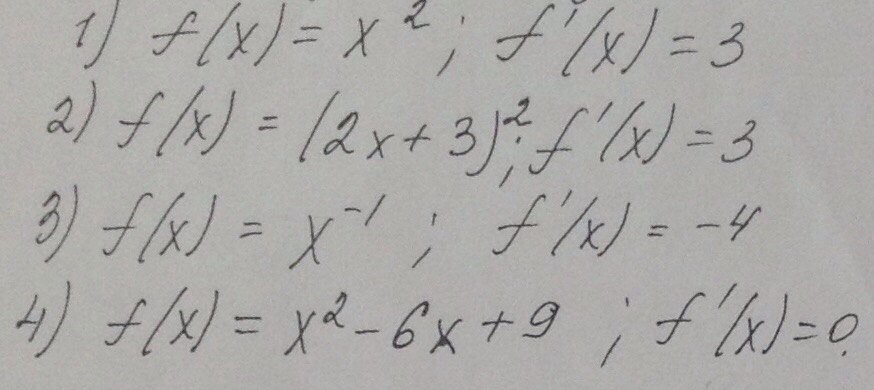 1) f(x) = x²; f'(x) = 3
2) f(x) = (2x + 3)²; f'(x) = 3
3) f(x) = x⁻¹; f'(x) = -4
4) f(x) = x² - 6x + 9; f'(x) = 0.